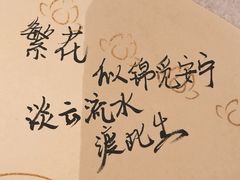 繁花
似锦觅安宁
淡云流水
渡此生